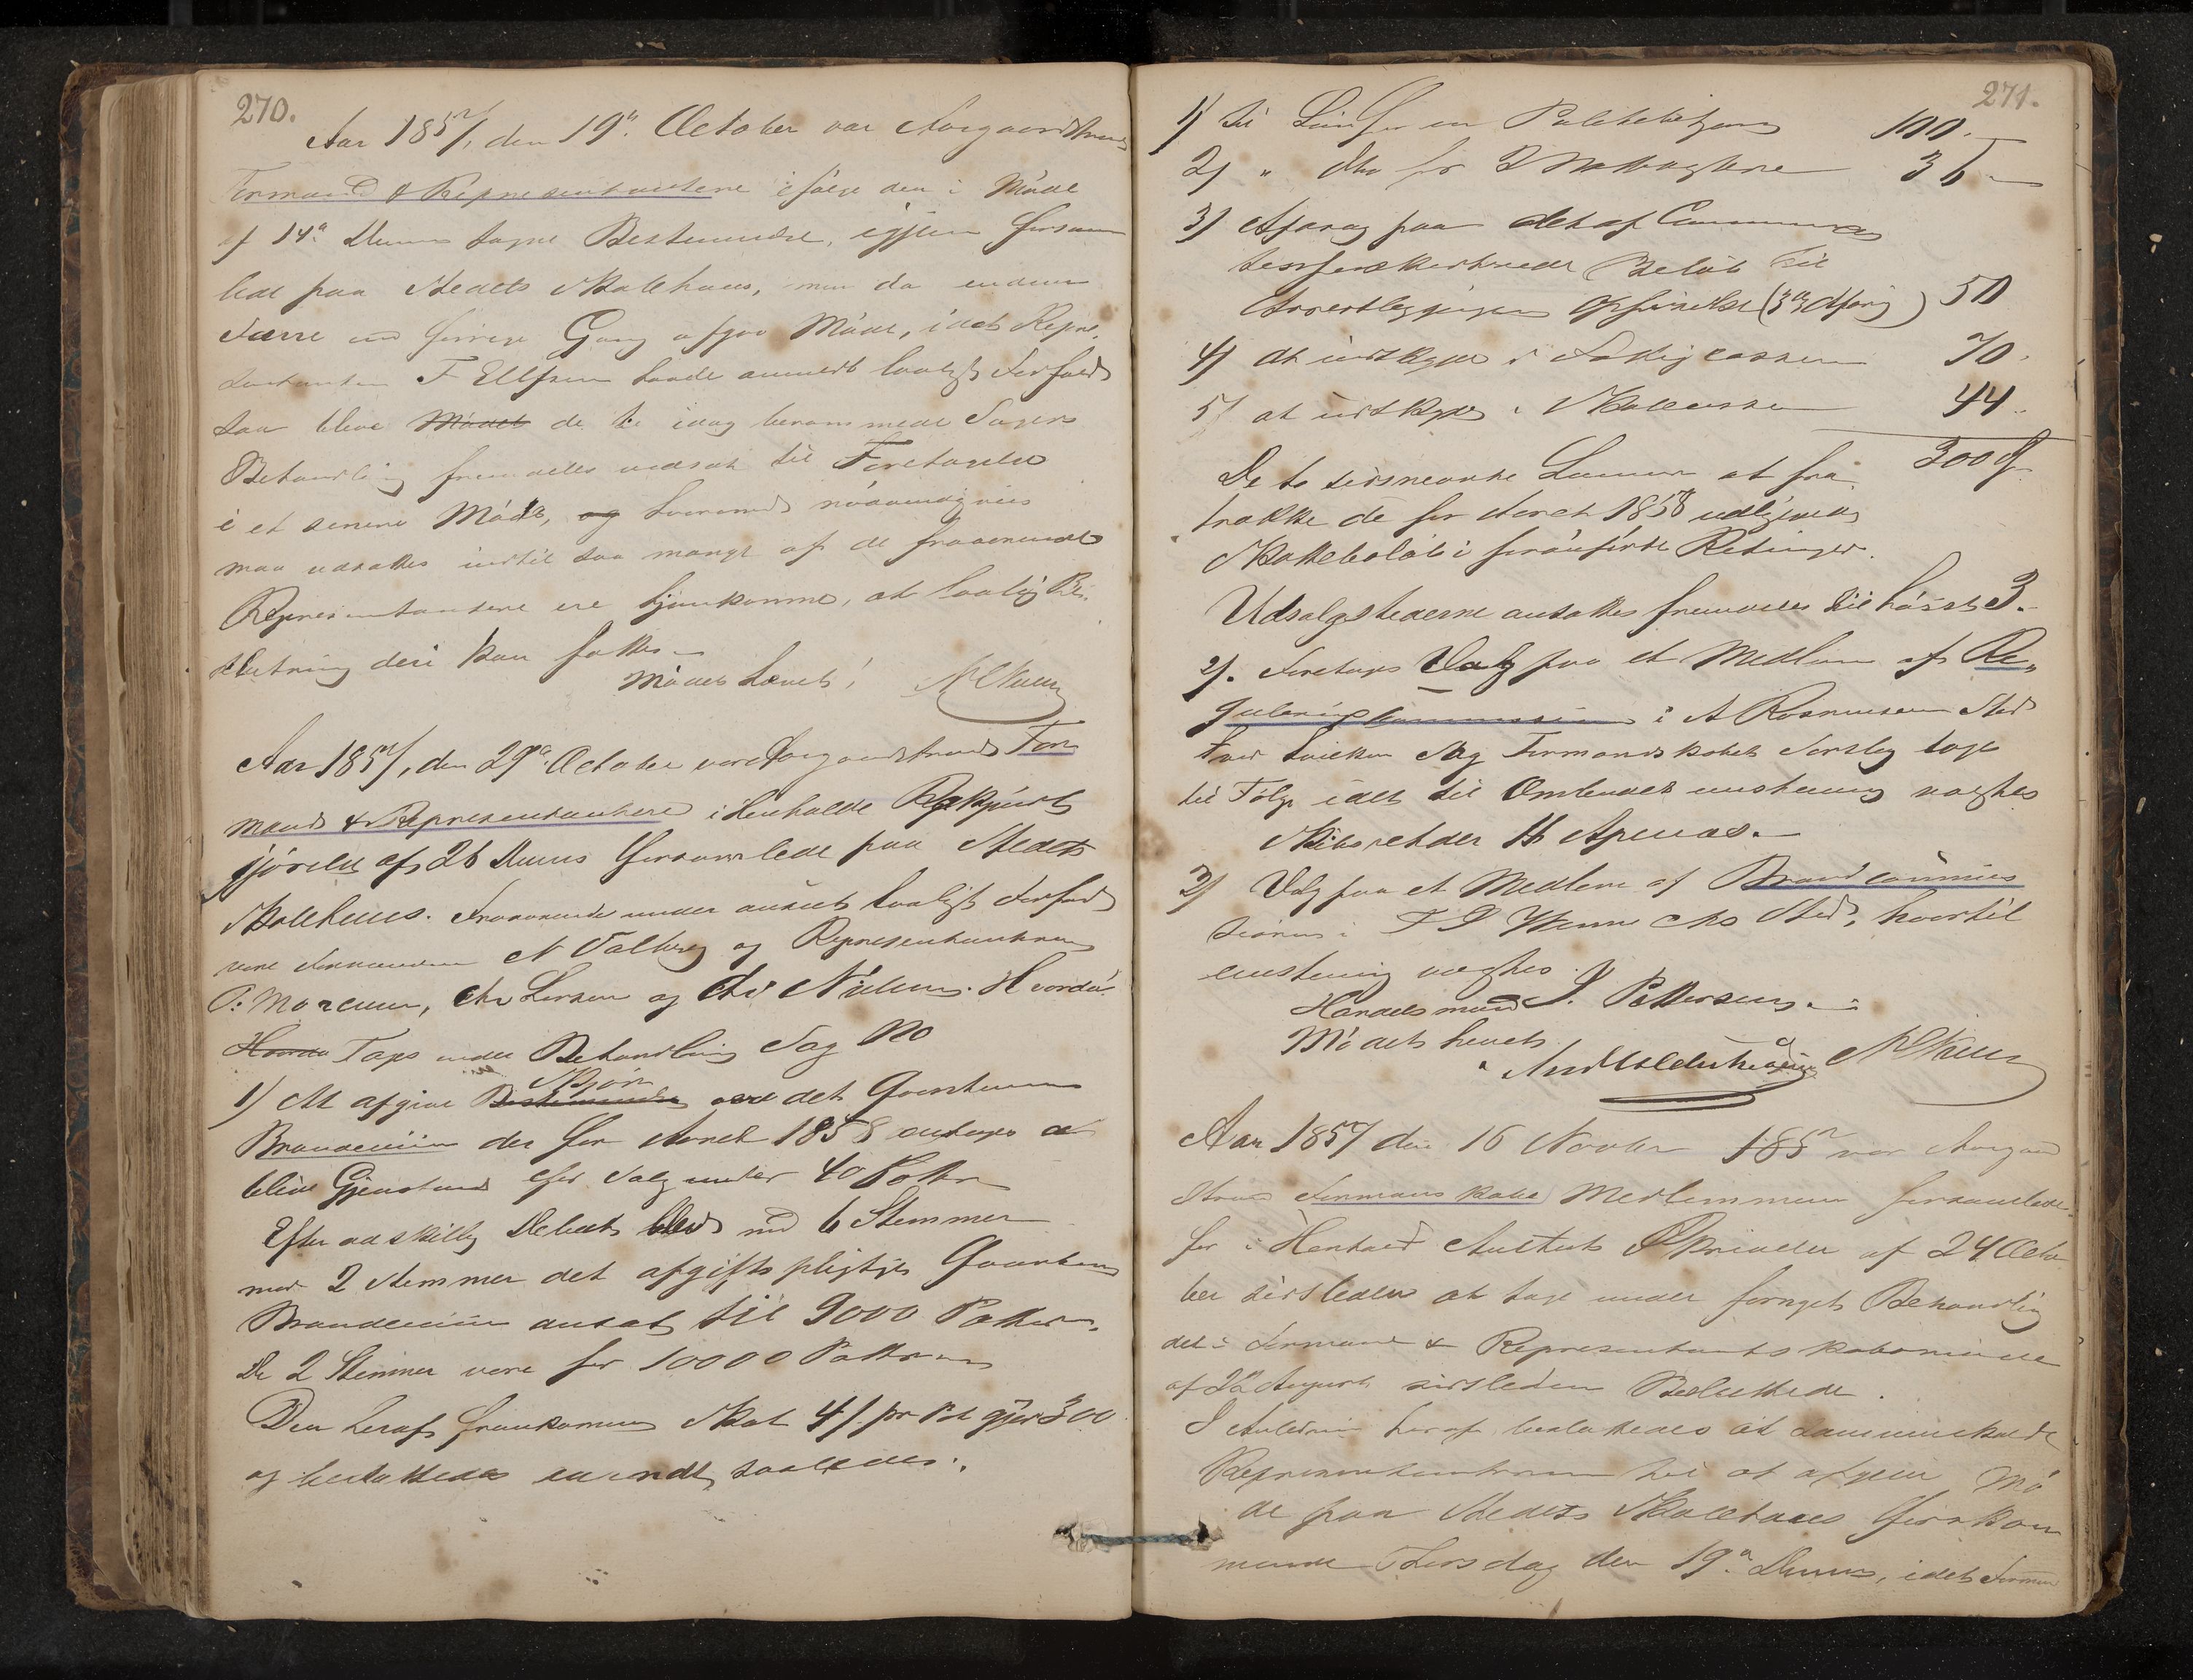 270.
Aar 1857, den 19de October var Aasgaardstrands
Formænd & Repræsentantere ifølge den i Møde
af 14de Dennes tagne Bestemmelse, igjen forsam
lede paa Stedets Skolehuus, men da endnu
Færre end forrige Gang afgav Møde, idet Repræ
sentanten F Ellefsen havde anmeldt lovligt Forfald
saa bleve Mødet de til idag berammede Sagers
Behandling fremdeles udsat til Foretagelse
i et senere Møde, og nødvendigviis
maa udsættes indtil saa mange af de fraværende
Repræsentantere ere hjemkomne, at lovlig Be-
slutning deri kan fattes.
Mødet hævet!
Aar 1857, den 29de October vare Aasgaardstrands For
mænd & Repræsentantere i Henhold til Bekjendt
gjørelse af 26 Dennes forsamlede paa Stedets
Skolehuus. Fraværende under anmeldt lovligt Forfald
vare Formanden N Falberg og Repræsentanterne
P: Marcussen, Chr Larsen og Chr Nielsen. Hvorda
Hvorda Toges under Behandling Sag No
1) At afgive Bestemmelse Skjøn over det Qvantum
Brændeviin der for Aaret 1858 antages at
blive Gjenstand for Salg under 40 Potter
Efter adskillig Debat blev med 6 Stemmer
mod 2 Stemmer det afgiftspligtige Qvantum
Brændeviin ansat til 9000 Potter.
De 2 Stemmer vare for 10000 Potter
Den heraf fremkomne Skat 4 s. pr Pot gjør 300
og besluttedes anvendt saaledes:
271.
1) til Løn for en Politiebetjent 100.
2) " Dto for 2 Natvægtere 36
3) Afdrag paa det af Communen
forstrakte Beløb til
Arrestbygningens Opførelse (3die Afdrag) 50
4) at indskyde i Fattigcassen 70.
5) at indskyde i Skolecassen 44.
300 Spd
De to sidsnævnte Summer at fra
trække de for Aaret 1858 udlignede
Skattebeløb i foranførte Retninger.
Udsalgstederne ansattes fremdeles til høist 3.
2). Foretages Valg paa et Medlem af Re„
guleringscommissionen i A Rasmussens Sted
ved hvilken Sag Formandskabets Forslag toges
til Følge idet til Ombudet enstemmig valgtes
Skibsreder H Apenæs.
3) Valg paa et Medlem af Brandcommis
sionen i Sted, hvortil
enstemmig valgtes
Handelsmand J. Pettersen.
Mødet hævet.
Aar 1857 den 16 Novbr 185 var Aasgaard
strands Formandskabs Medlemmer forsamlede
for i Henhold Amtets Skrivelse af 24 Octo
ber sidstleden at tage under fornyet Behandling
det i Formænd & Repræsentantskabsmøde
af August sidstleden Besluttede.
I Anledning heraf besluttedes at sammenkalde
Repræsentanterne til at afgive Mø
de paa Stedets Skolehuus førstkom
mende Torsdag den 19de Dennes, idet Forman